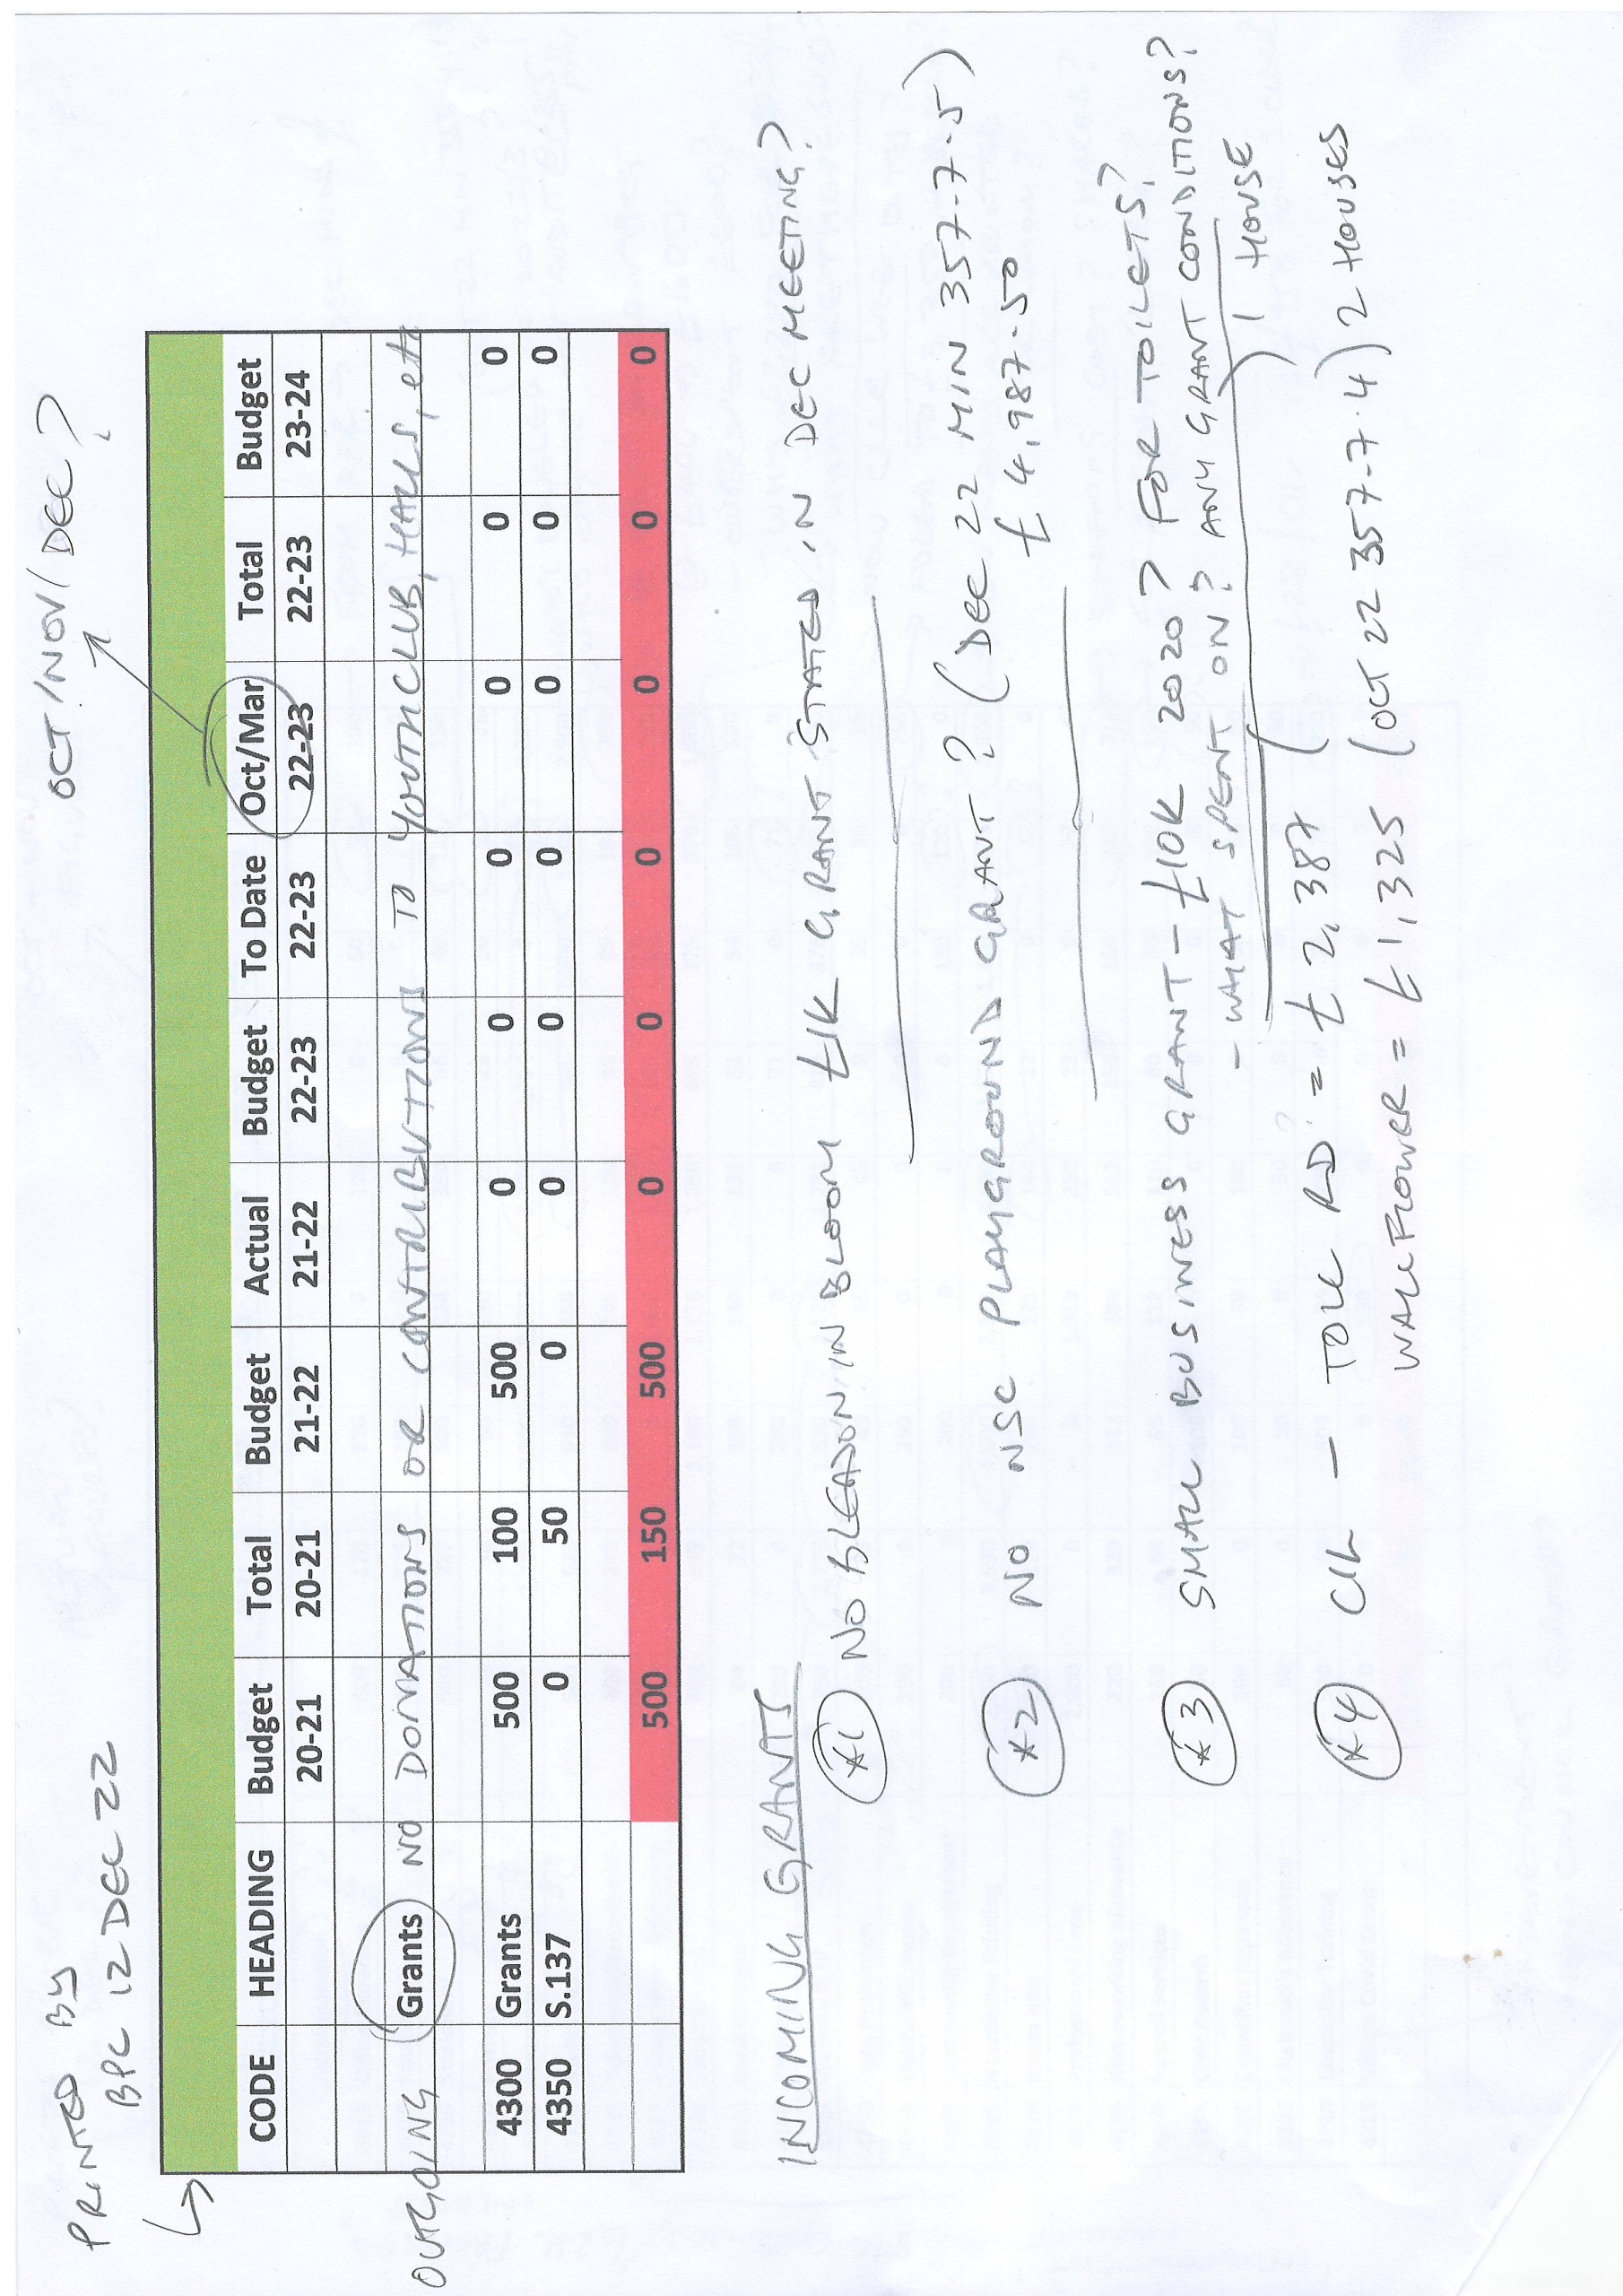 PRINTED BY
BPC 12 DEC 22
OCT/NOV/DEC?
CODE HEADING Budget Total Budget Actual Budget To Date Oct/Mar Total Budget
20-21 20-21 21-22 21-22 22-23 22-23 22-23 22-23 23-24
OUTGOING Grants NO DONATIONS OR CONTRIBUTIONS TO YOUTH CLUB, HALLS, etc
4300 Grants 500 100 500 0 0 0 0 0 0
4350 S.137 0 50 0 0 0 0 0 0 0
500 150 500 0 0 0 0 0 0
INCOMING GRANTS
*1 NO BLEADON IN BLOOM £1K GRANT STATED IN DEC MEETING?
*2 NO NSC PLAYGROUND GRANT? (DEC 22 MIN 357-7-5)
£4,987-50
*3 SMALL BUSINESS GRANT - £10K 2020? FOR TOILETS?
- WHAT SPENT ON? ANY GRANT CONDITIONS?
*4 CIL - TOLL RD = £2,387 ( ) 1 HOUSE
WALLFLOWER = £1,325 (OCT 22 357-7-4) 2 HOUSES